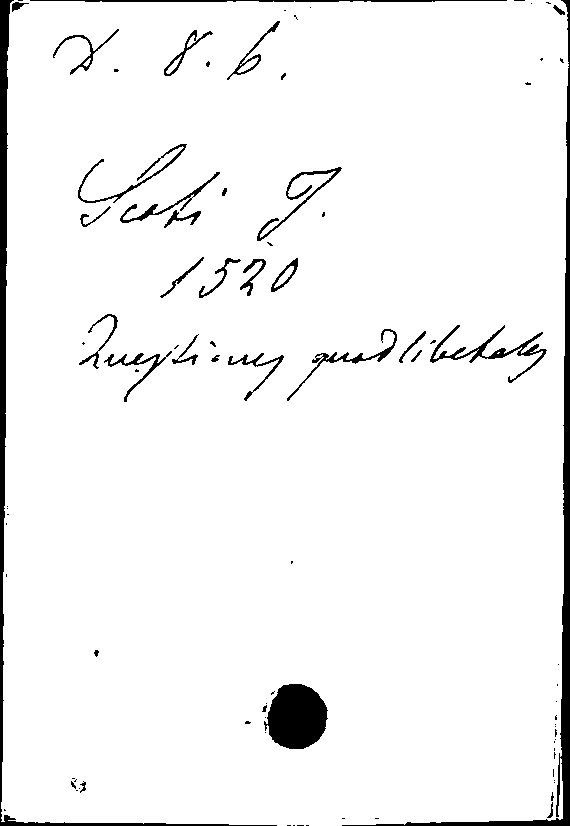 D. 8. 6.
Scoti J.
1520
Questiones quodlibetales